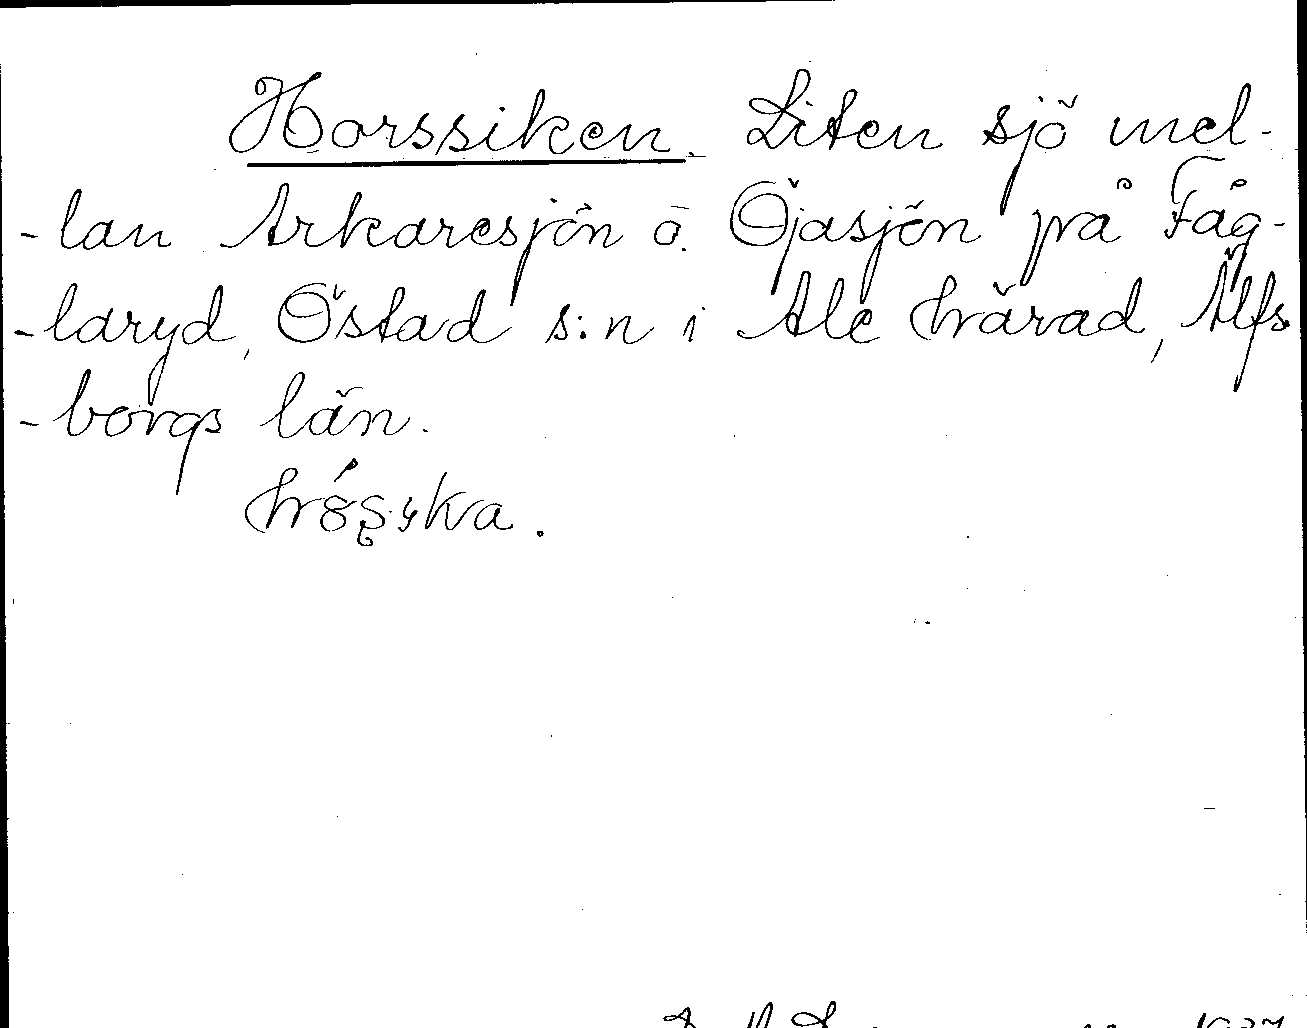 Horssiken. Liten sjö mel-
-lan Arkaresjön o. Öjasjön på Fåg-
-laryd, Östad s:n i Ale härad, Älfs
-borgs län.